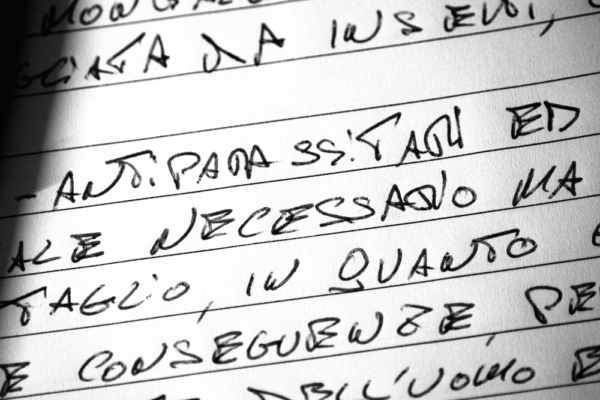 GGIATA DA INSETTI,
- ANTIPARASSITARI ED
ALE NECESSARIO MA
TAGLIO, IN QUANTO
E CONSEGUENZE, PE
DELL'UOMO E